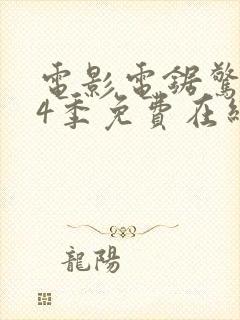 電影電鋸驚
4季免費在線
龍陽